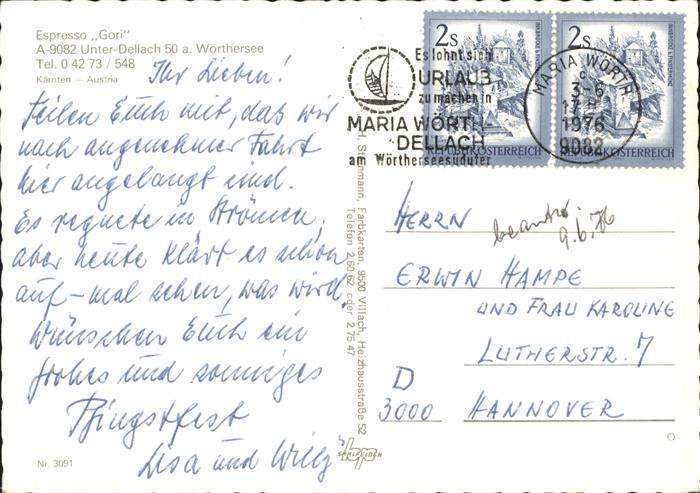 Espresso „Gori"
A-9082 Unter-Dellach 50 a. Wörthersee
Tel. 0 42 73 / 548
Kärnten – Austria
Ihr Lieben!
Teilen Euch mit, das wir
nach angenehmer Fahrt
hier angelangt sind.
Es regnete in Strömen,
aber heute klärt es schon
auf – mal sehen, was wird.
Wünschen Euch ein
frohes und sonniges
Pfingstfest
Lisa und Willy
Nr. 3091
Farbkarten, 9500 Villach, Heizhausstraße 52
Telefon 2 60 62 oder 2 75 47
2s
2s
REPUBLIK ÖSTERREICH
Es lohnt sich
URLAUB
zu machen in
MARIA WÖRTH
DELLACH
am Wörtherseesüdufer
MARIA WÖRTH
c
3.-6.
1976
9082
HERRN
beantw.
9.6.76
ERWIN HAMPE
UND FRAU KAROLINE
LUTHERSTR. 7
D
3000 HANNOVER